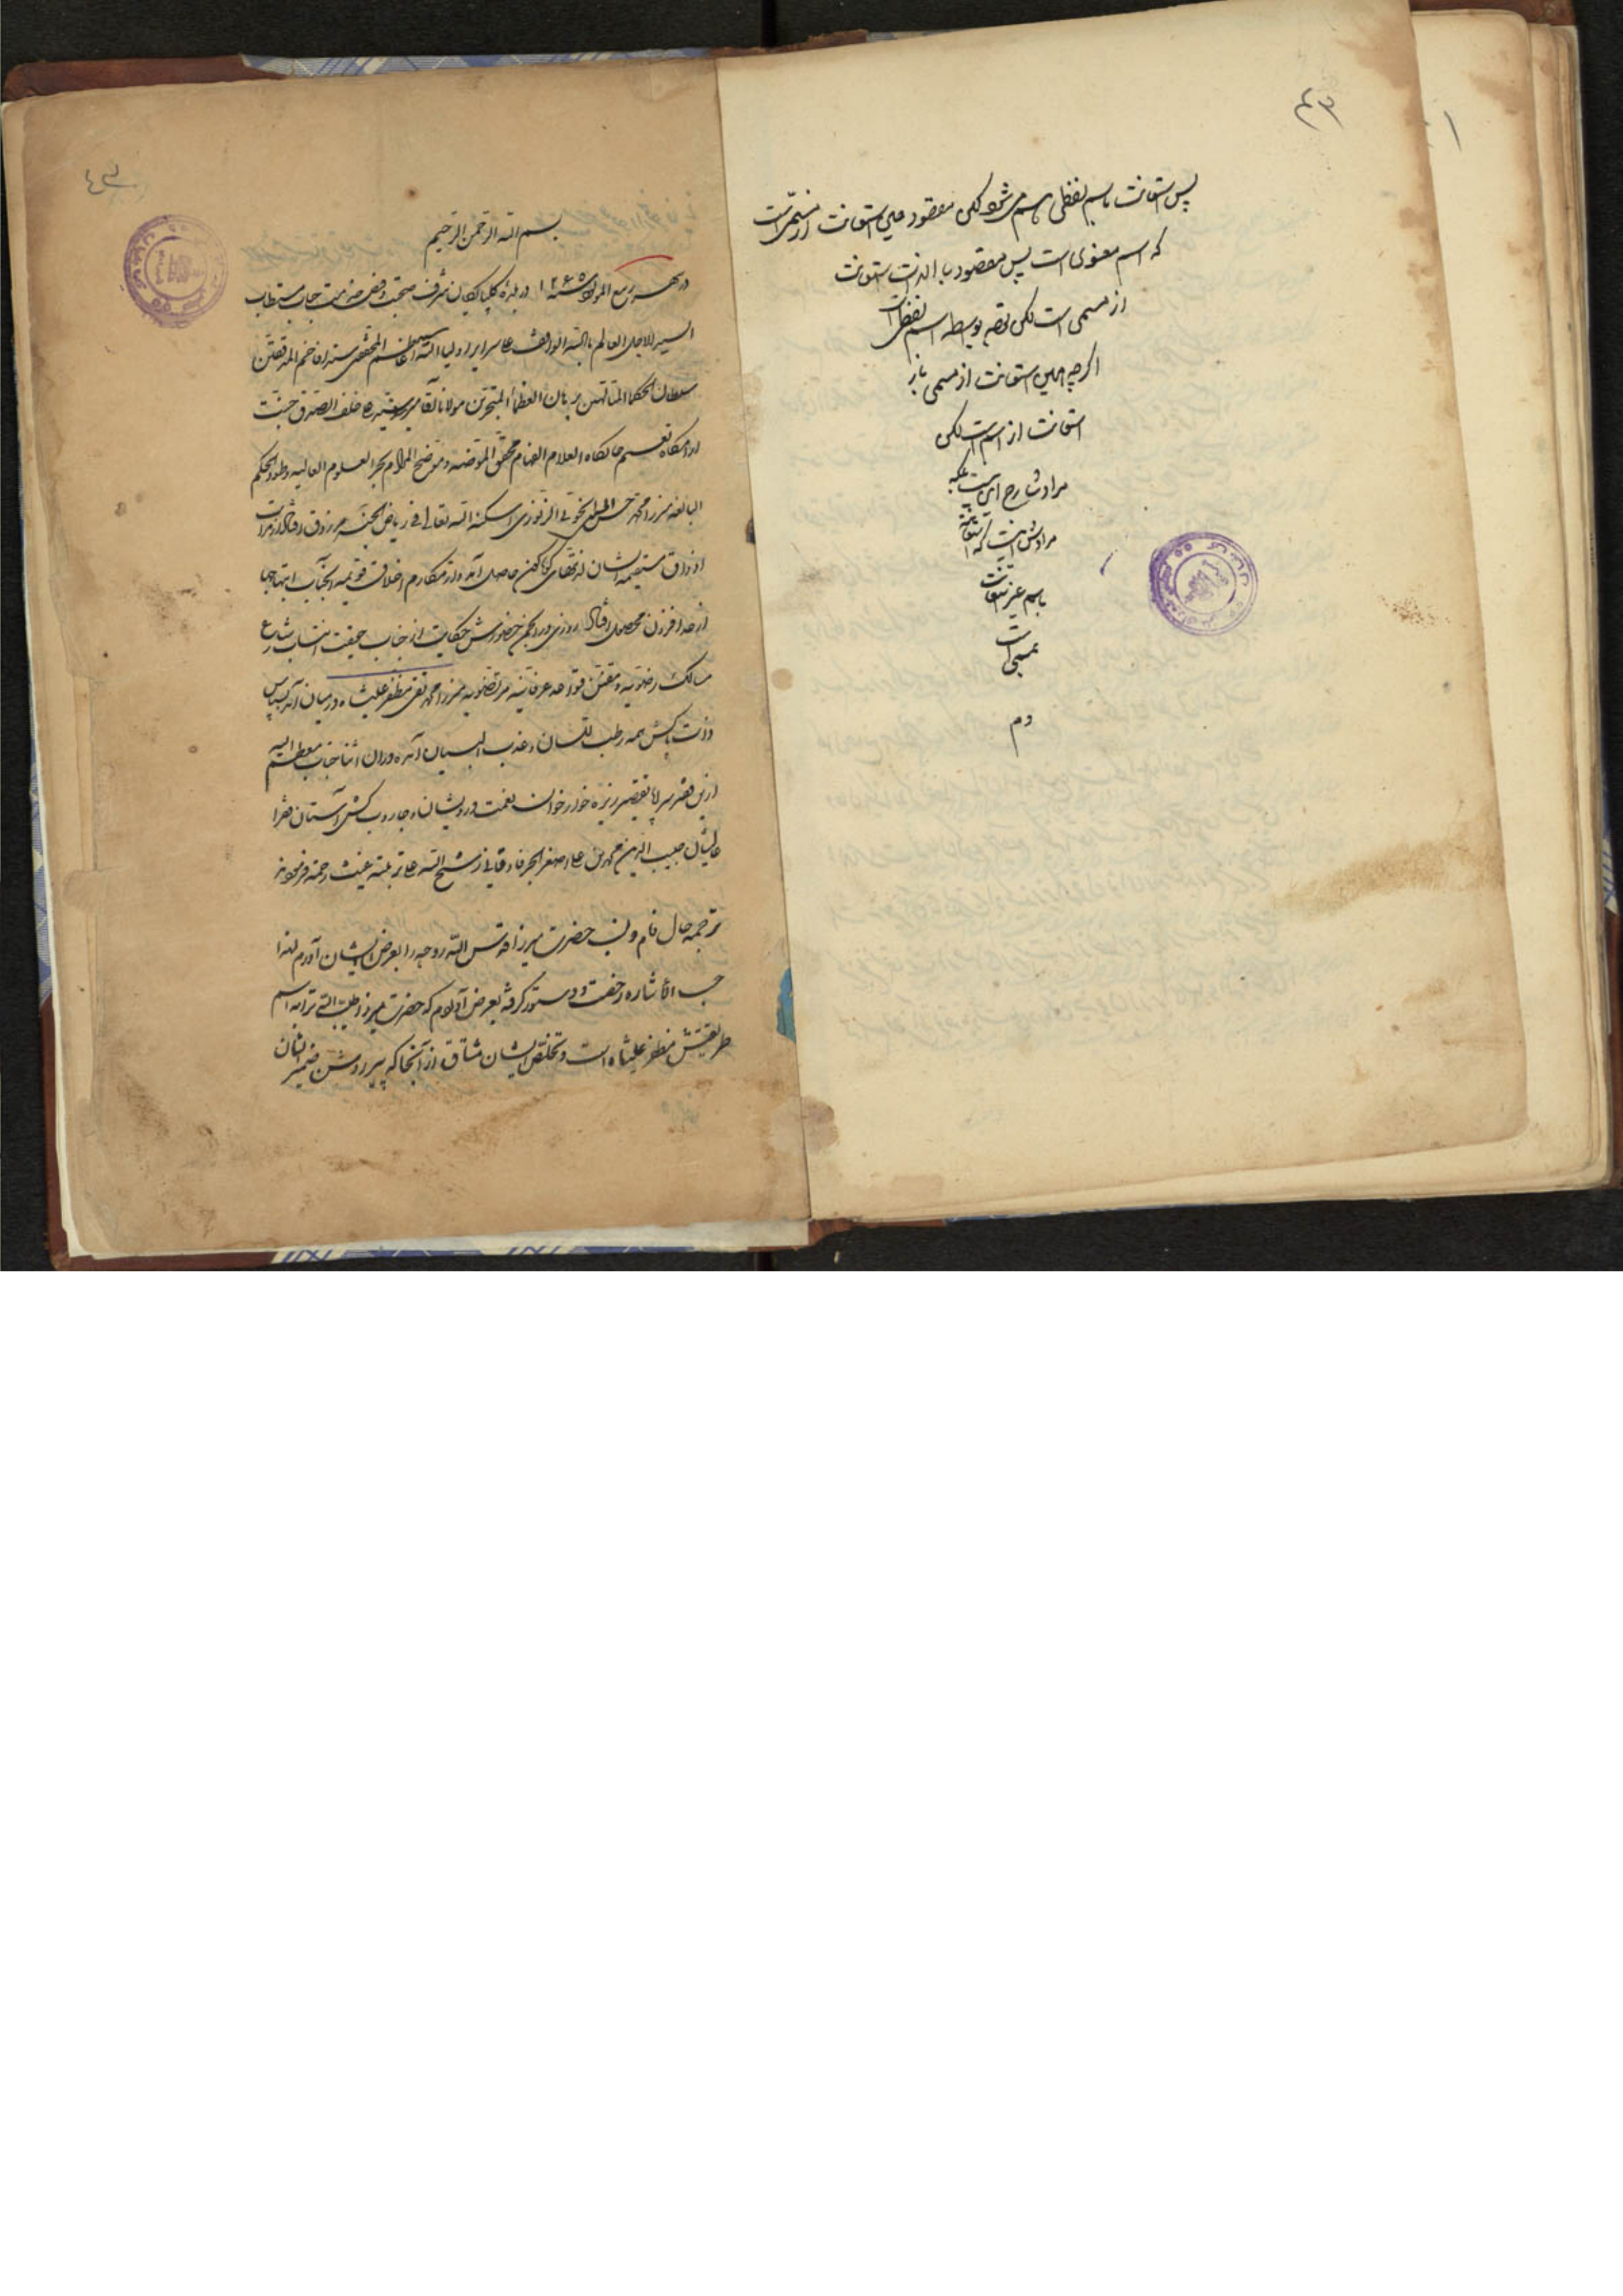 ۴۲
پس استعانت باسم لفظی هم می‌شود لکن مقصود اصلی استعانت از مسمی است
که اسم معنوی است پس مقصود بالذات استعانت
از مسمی است لکن توجه بواسطه اسم لفظی است
اگرچه همین استعانت از مسمی باز
استعانت از اسم است لکن
مراد شارح این نیست بلکه
مرادش اینست که استعانت
باسم غیر استعانت
بمسمی است
دم
۴۳
بسم الله الرحمن الرحیم
در شهر ربیع المولود سنه ۱۲۶۵ در بلده گلپایگان شرف صحبت و فیض خدمت جناب مستطاب
السید الاجل العالم بالله الواقف علی اسرار اولیاء الله سید اعاظم المحققین سند افاخم المدققین
سلطان الحکماء المتالهین برهان العظماء المتبحرین مولانا آقا میر سید علی خلف الصدق جنت
آرامگاه نعیم جایگاه العلام الفهام محقق الموضه و موضح المرام بحر العلوم العالیه و طود الحکم
البالغه میرزا محمد حسن الحسینی الزنوزی اسکنه الله تعالی فی ریاض الجنه مرزوق افتاد و از برکات
اذواق مستقیمه ایشان لذتهای گوناگون حاصل آمد و از مکارم اخلاق قویمه آنجناب ابتهاجها
از حد افزون محصول افتاد روزی در انجمن حضورش حکایت از جناب حقیقت انتساب شارع
مسالک رضویه و مقنن قواعد عرفانیه مرتضویه میرزا محمد تقی مظفر علیشاه در میان آمد بسپاس
ذات پاکش همه رطب اللسان و عذب البیان آمده در آن اثنا جناب معظم الیه
از این فقیر سراپا تقصیر ریزه خوار خوان نعمت درویشان و جاروب کش آستان فقرا
عالیشان حبیب الدین محمد بن علی اصغر الجرفادقانی رشح الله علی تربته غیث رحمته فرمودند
ترجمه حال نام و نسب حضرت میرزا قدس الله روحه را بعرض ایشان آورم لهذا
حسب الاشاره رخصت و دستور گرفته بعرض آوردم که حضرت میرزا طیب الله ترابه اسم
طریقتش مظفر علیشاه است و تخلص ایشان مشتاق از آنجا که پیر روشن ضمیر ایشان